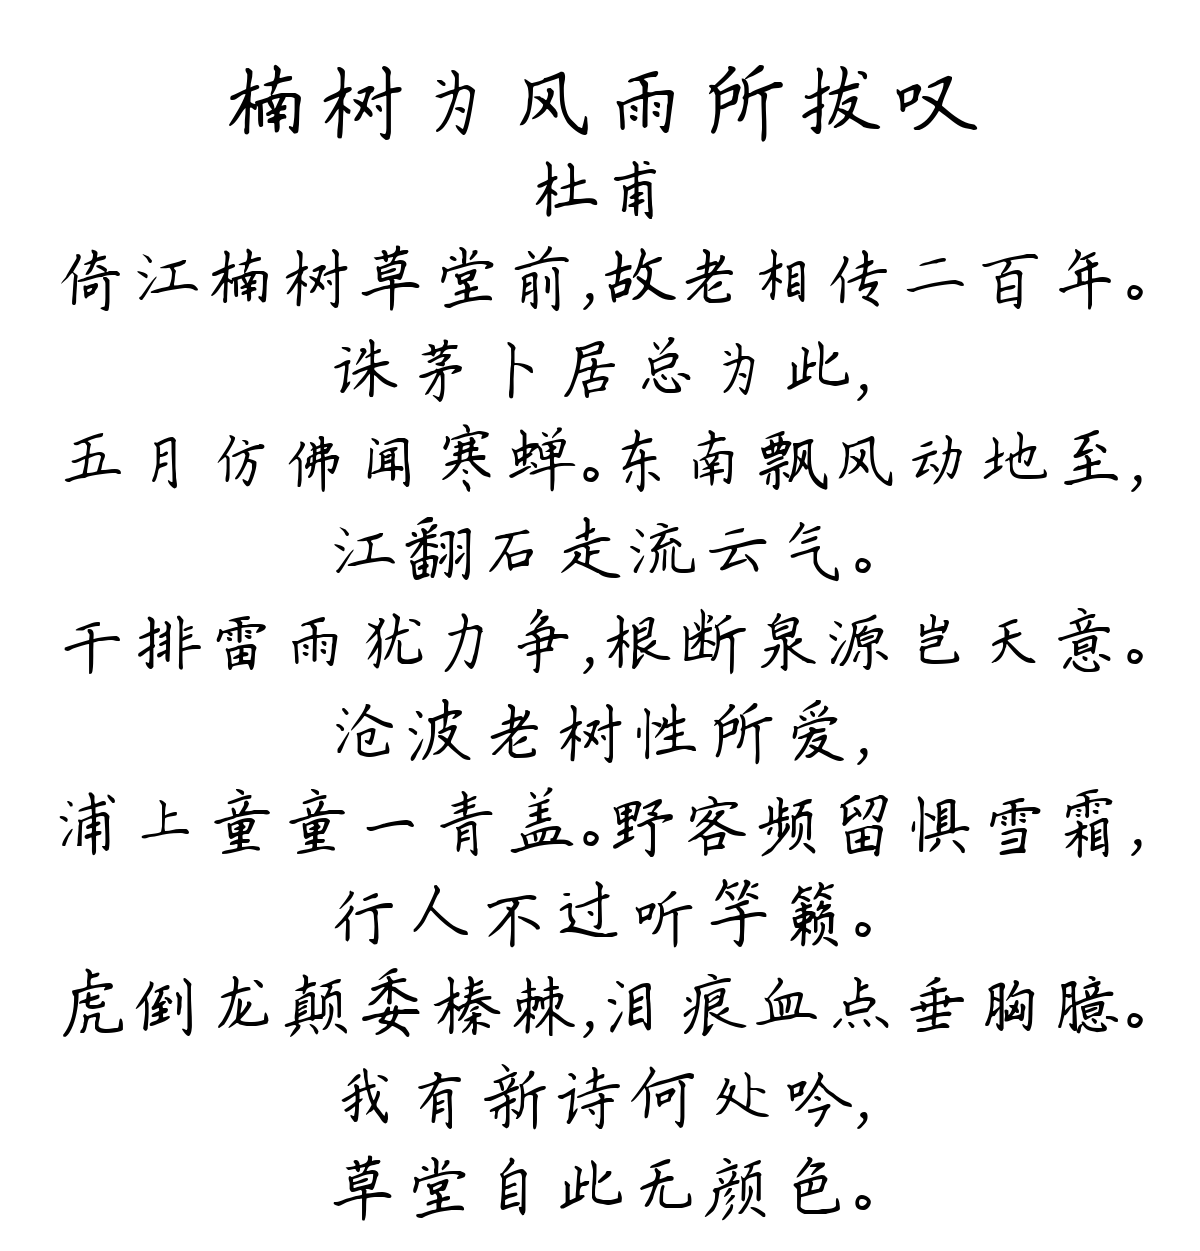 楠树为风雨所拔叹
杜甫
倚江楠树草堂前,故老相传二百年。
诛茅卜居总为此,
五月仿佛闻寒蝉。东南飘风动地至,
江翻石走流云气。
干排雷雨犹力争,根断泉源岂天意。
沧波老树性所爱,
浦上童童一青盖。野客频留惧雪霜,
行人不过听竽籁。
虎倒龙颠委榛棘,泪痕血点垂胸臆。
我有新诗何处吟,
草堂自此无颜色。